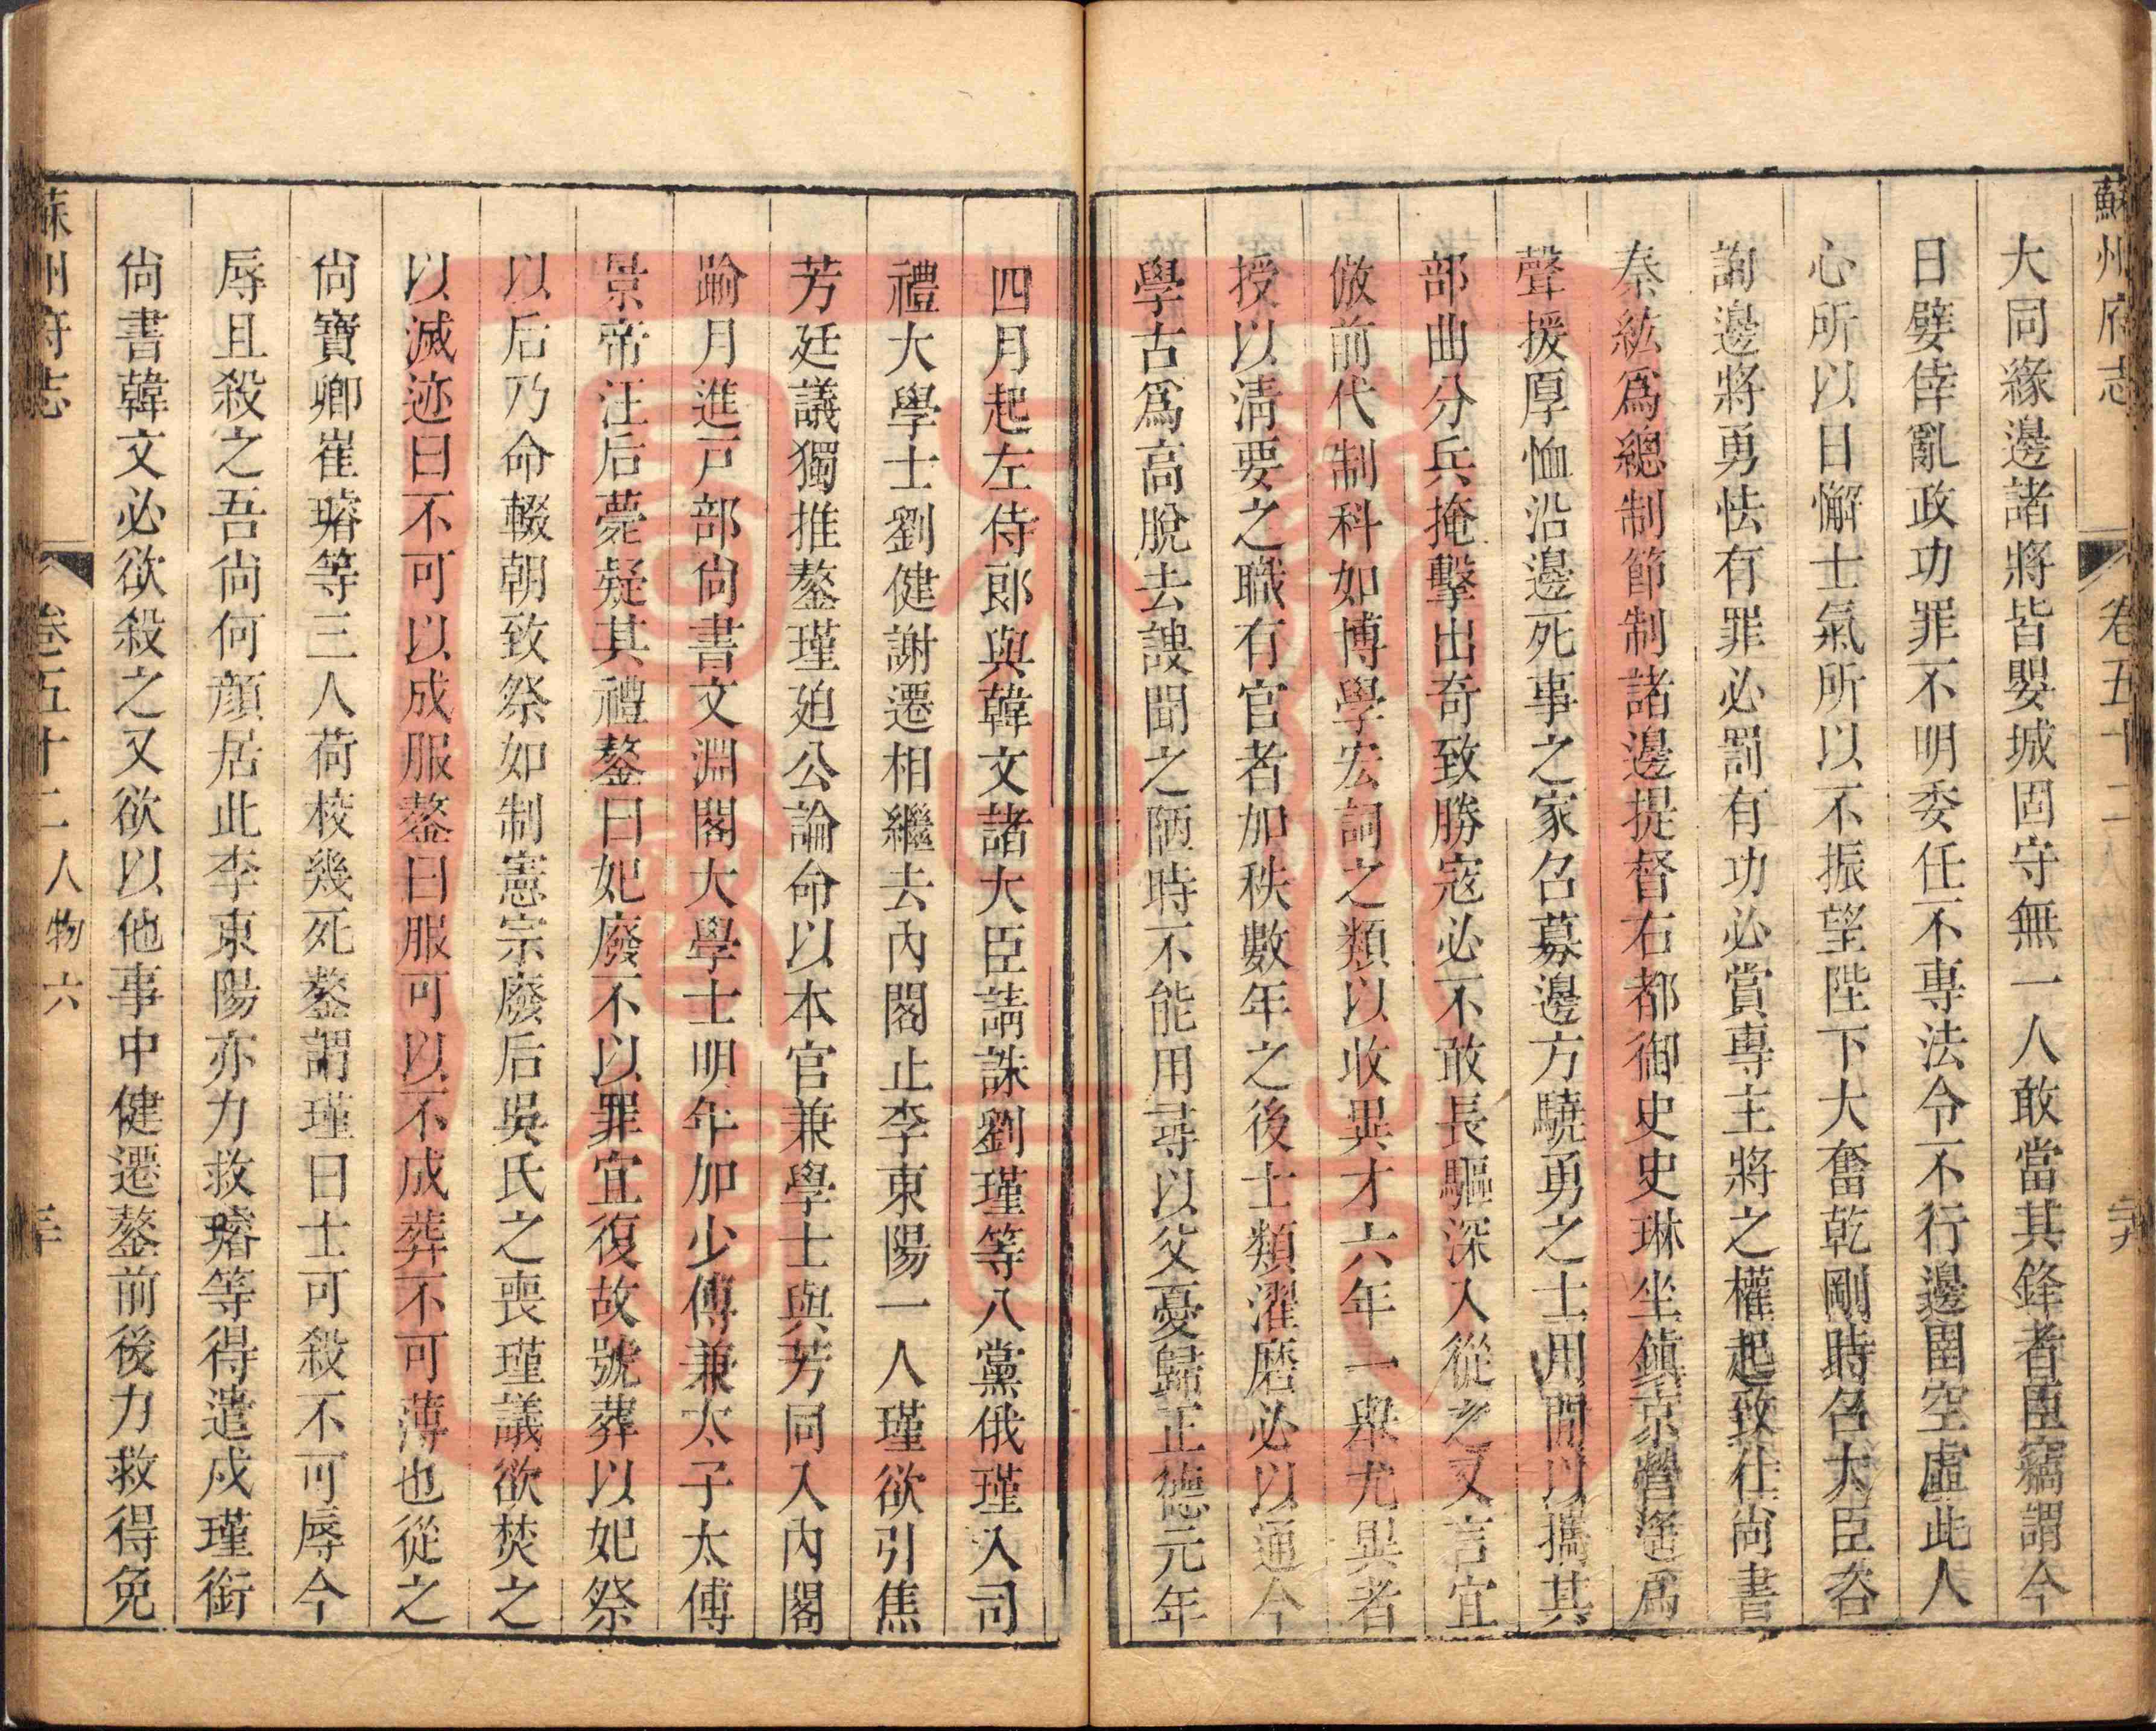 蘇州府志 卷五十二 人物 二十九
大同緣邊諸將皆嬰城固守無一人敢當其鋒者臣竊謂今
日嬖倖亂政功罪不明委任不專法令不行邊圉空虛此人
心所以日懈士氣所以不振望陛下大奮乾剛時召大臣咨
詢邊將勇怯有罪必罰有功必賞專主將之權起致仕尙書
秦紘爲總制節制諸邊提督右都御史史琳坐鎭京營遙爲
聲援厚恤沿邊死事之家召募邊方驍勇之士用間以攜其
部曲分兵掩擊出奇致勝寇必不敢長驅深入從之又言宜
倣前代制科如博學宏詞之類以收異才六年一舉尤異者
授以淸要之職有官者加秩數年之後士類濯磨必以通今
學古爲高脫去謏聞之陋時不能用尋以父憂歸正德元年
四月起左侍郎與韓文諸大臣請誅劉瑾等八黨俄瑾入司
禮大學士劉健謝遷相繼去內閣止李東陽一人瑾欲引焦
芳廷議獨推鏊瑾廹公論命以本官兼學士與芳同入內閣
踰月進戸部尙書文淵閣大學士明年加少傅兼太子太傅
景帝汪后薨疑其禮鏊曰妃廢不以罪宜復故號葬以妃祭
以后乃命輟朝致祭如制憲宗廢后吳氏之喪瑾議欲焚之
以滅迹曰不可以成服鏊曰服可以不成葬不可薄也從之
尙寶卿崔璿等三人荷校幾死鏊謂瑾曰士可殺不可辱今
辱且殺之吾尙何顔居此李東陽亦力救璿等得遣戍瑾銜
尙書韓文必欲殺之又欲以他事中健遷鏊前後力救得免
蘇州府志 卷五十二 人物六 三十